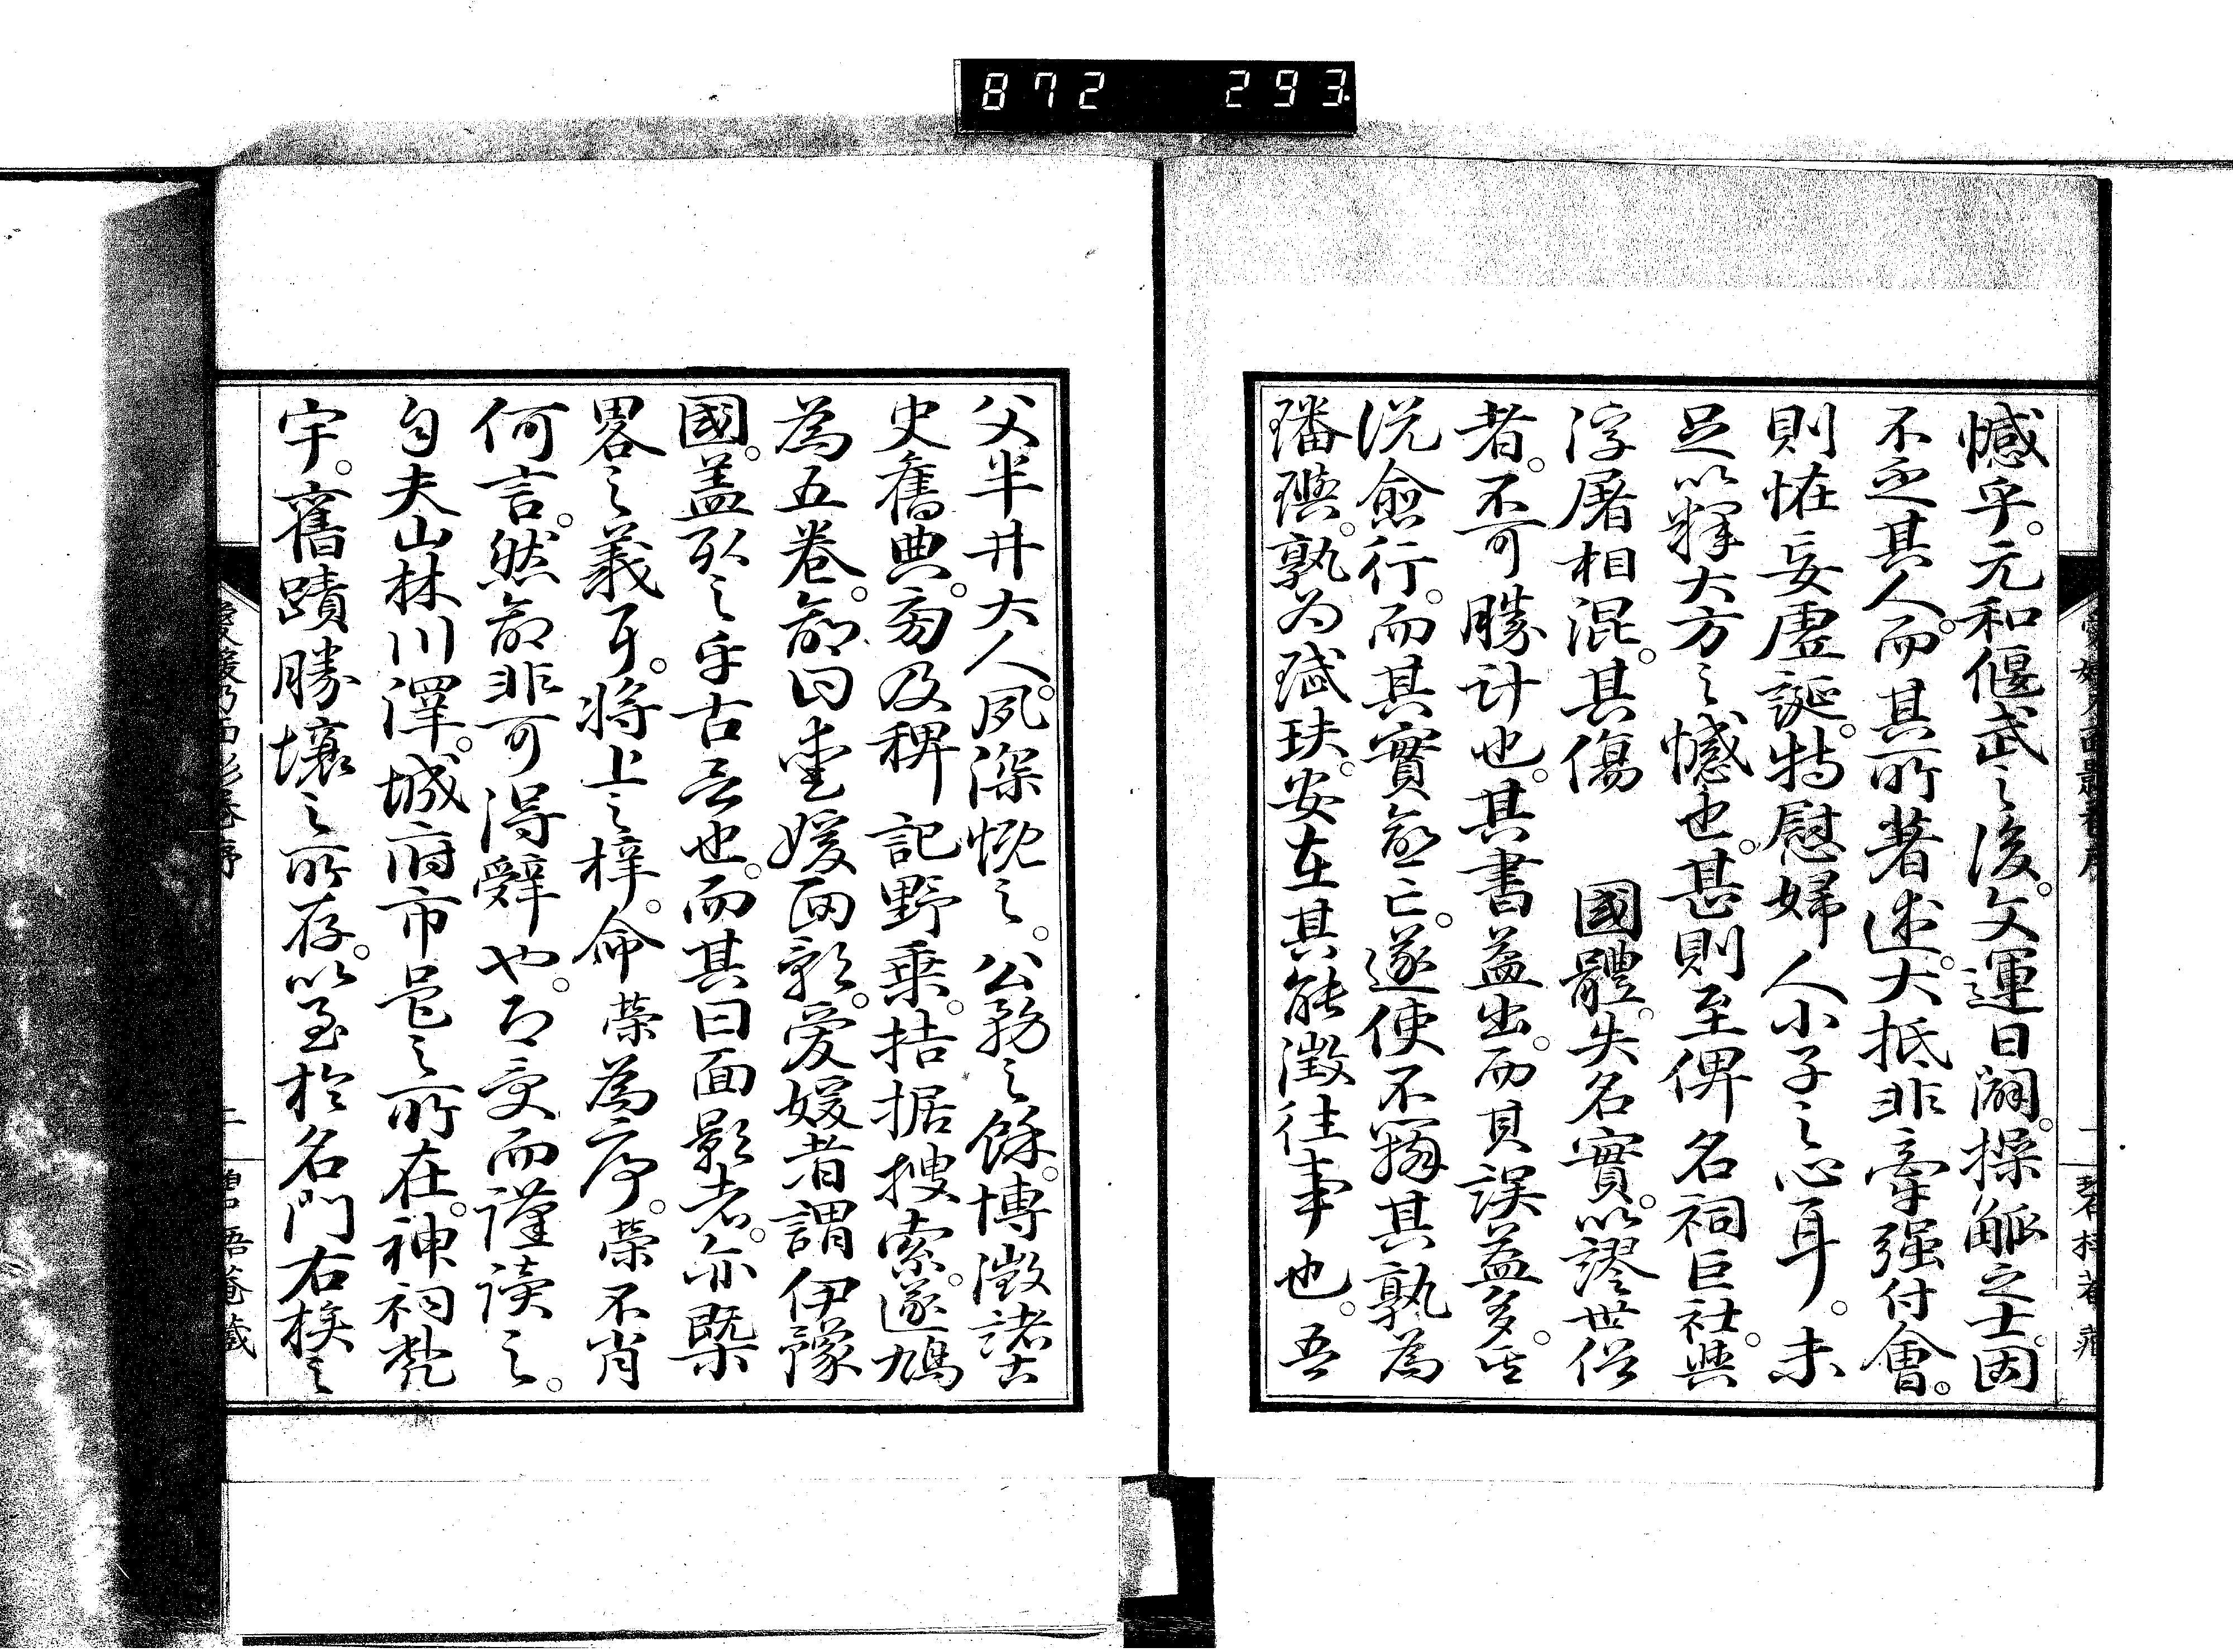 872 293.
憾乎。元和偃武之後。文運日闢。操觚之士。因
不乏其人。而其所著述。大抵非牽强付會。
則恠妄虛誕。特慰婦人小子之心耳。未
足以釋大方之憾也。甚則至俾名祠巨社。與
浮屠相混。其傷 國體。失名實。以謬世俗
者。不可勝計也。其書益出。而其誤益多。
說愈行。而其實愈亡。遂使不辨其孰為
璠璵。孰為珷玞。安在其能徵往事也。吾
父半井大人。夙深慨之。公務之餘。博徵諸
史舊典。旁及稗記野乗。拮据搜索。遂為
為五卷。命曰愛媛面影。愛媛者謂伊豫
國。盖取之乎古言也。而其曰面影者。亦槩
畧之義耳。將上之梓。命榮為序。榮不肖
何言。然命非可得辭也。乃受而謹讀之。
自夫山林川澤。城府市邑之所在。神祠梵
宇。舊蹟勝壤之所存。以至於名門右族之
愛媛乃面影卷序